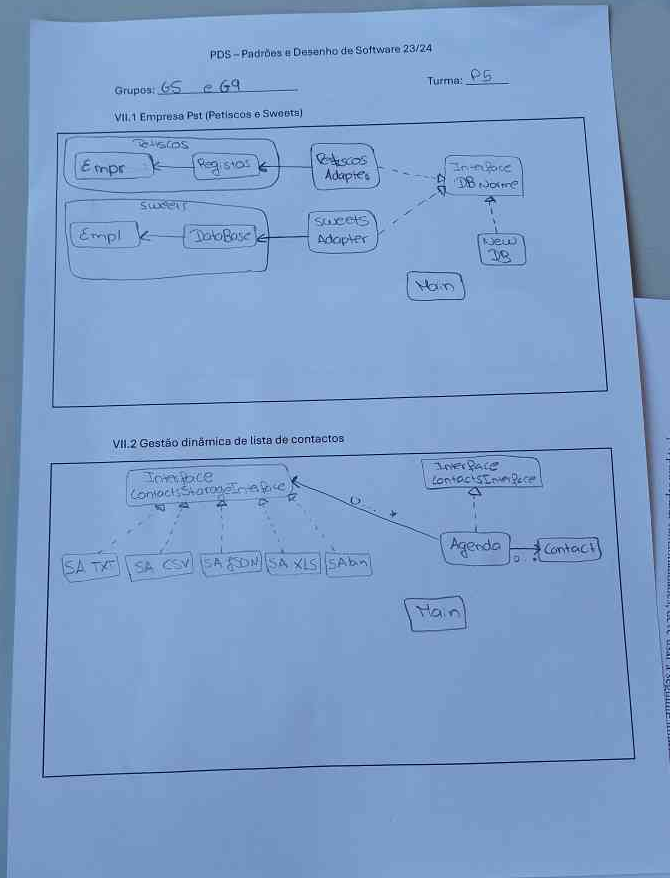 PDS – Padrões e Desenho de Software 23/24
Grupos: G5 e G9 Turma: P5
VII.1 Empresa Pst (Petiscos e Sweets)
Petiscos
Empr Registos Petiscos Adapter
Interface DB Norme
Sweets
Empl DataBase Sweets Adapter
New DB
Main
VII.2 Gestão dinâmica de lista de contactos
Interface
ContactsStorageInterface
Interface
ContactsInterface
0..*
Agenda
0..*
Contact
SA TXT SA CSV SA JSON SA XLS SAbin
Main